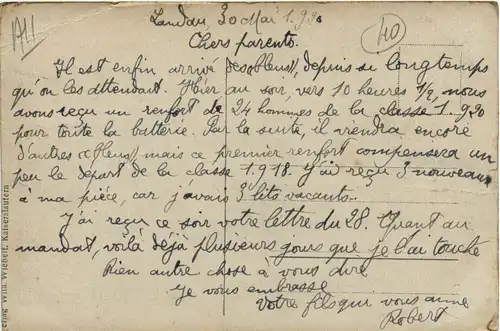 1711
Landau 30 Mai 1.920
40
Chers parents.
Il est enfin arrivé des « bleus », depuis si longtemps
qu'on les attendait. Hier au soir, vers 10 heures 1/2, nous
avons reçu un renfort de 24 hommes de la classe 1.920
pour toute la batterie. Par la suite, il viendra encore
d'autres « bleus », mais ce premier renfort compensera un
peu le départ de la classe 1.918. J'ai reçu 3 nouveaux
à ma pièce, car j'avais 3 lits vacants.
J'ai reçu ce soir votre lettre du 28. Quant au
mandat, voilà déjà plusieurs jours que je l'ai touché
Rien autre chose à vous dire.
Je vous embrasse
Votre fils qui vous aime
Robert
Verlag Wilh. Kaiserslautern